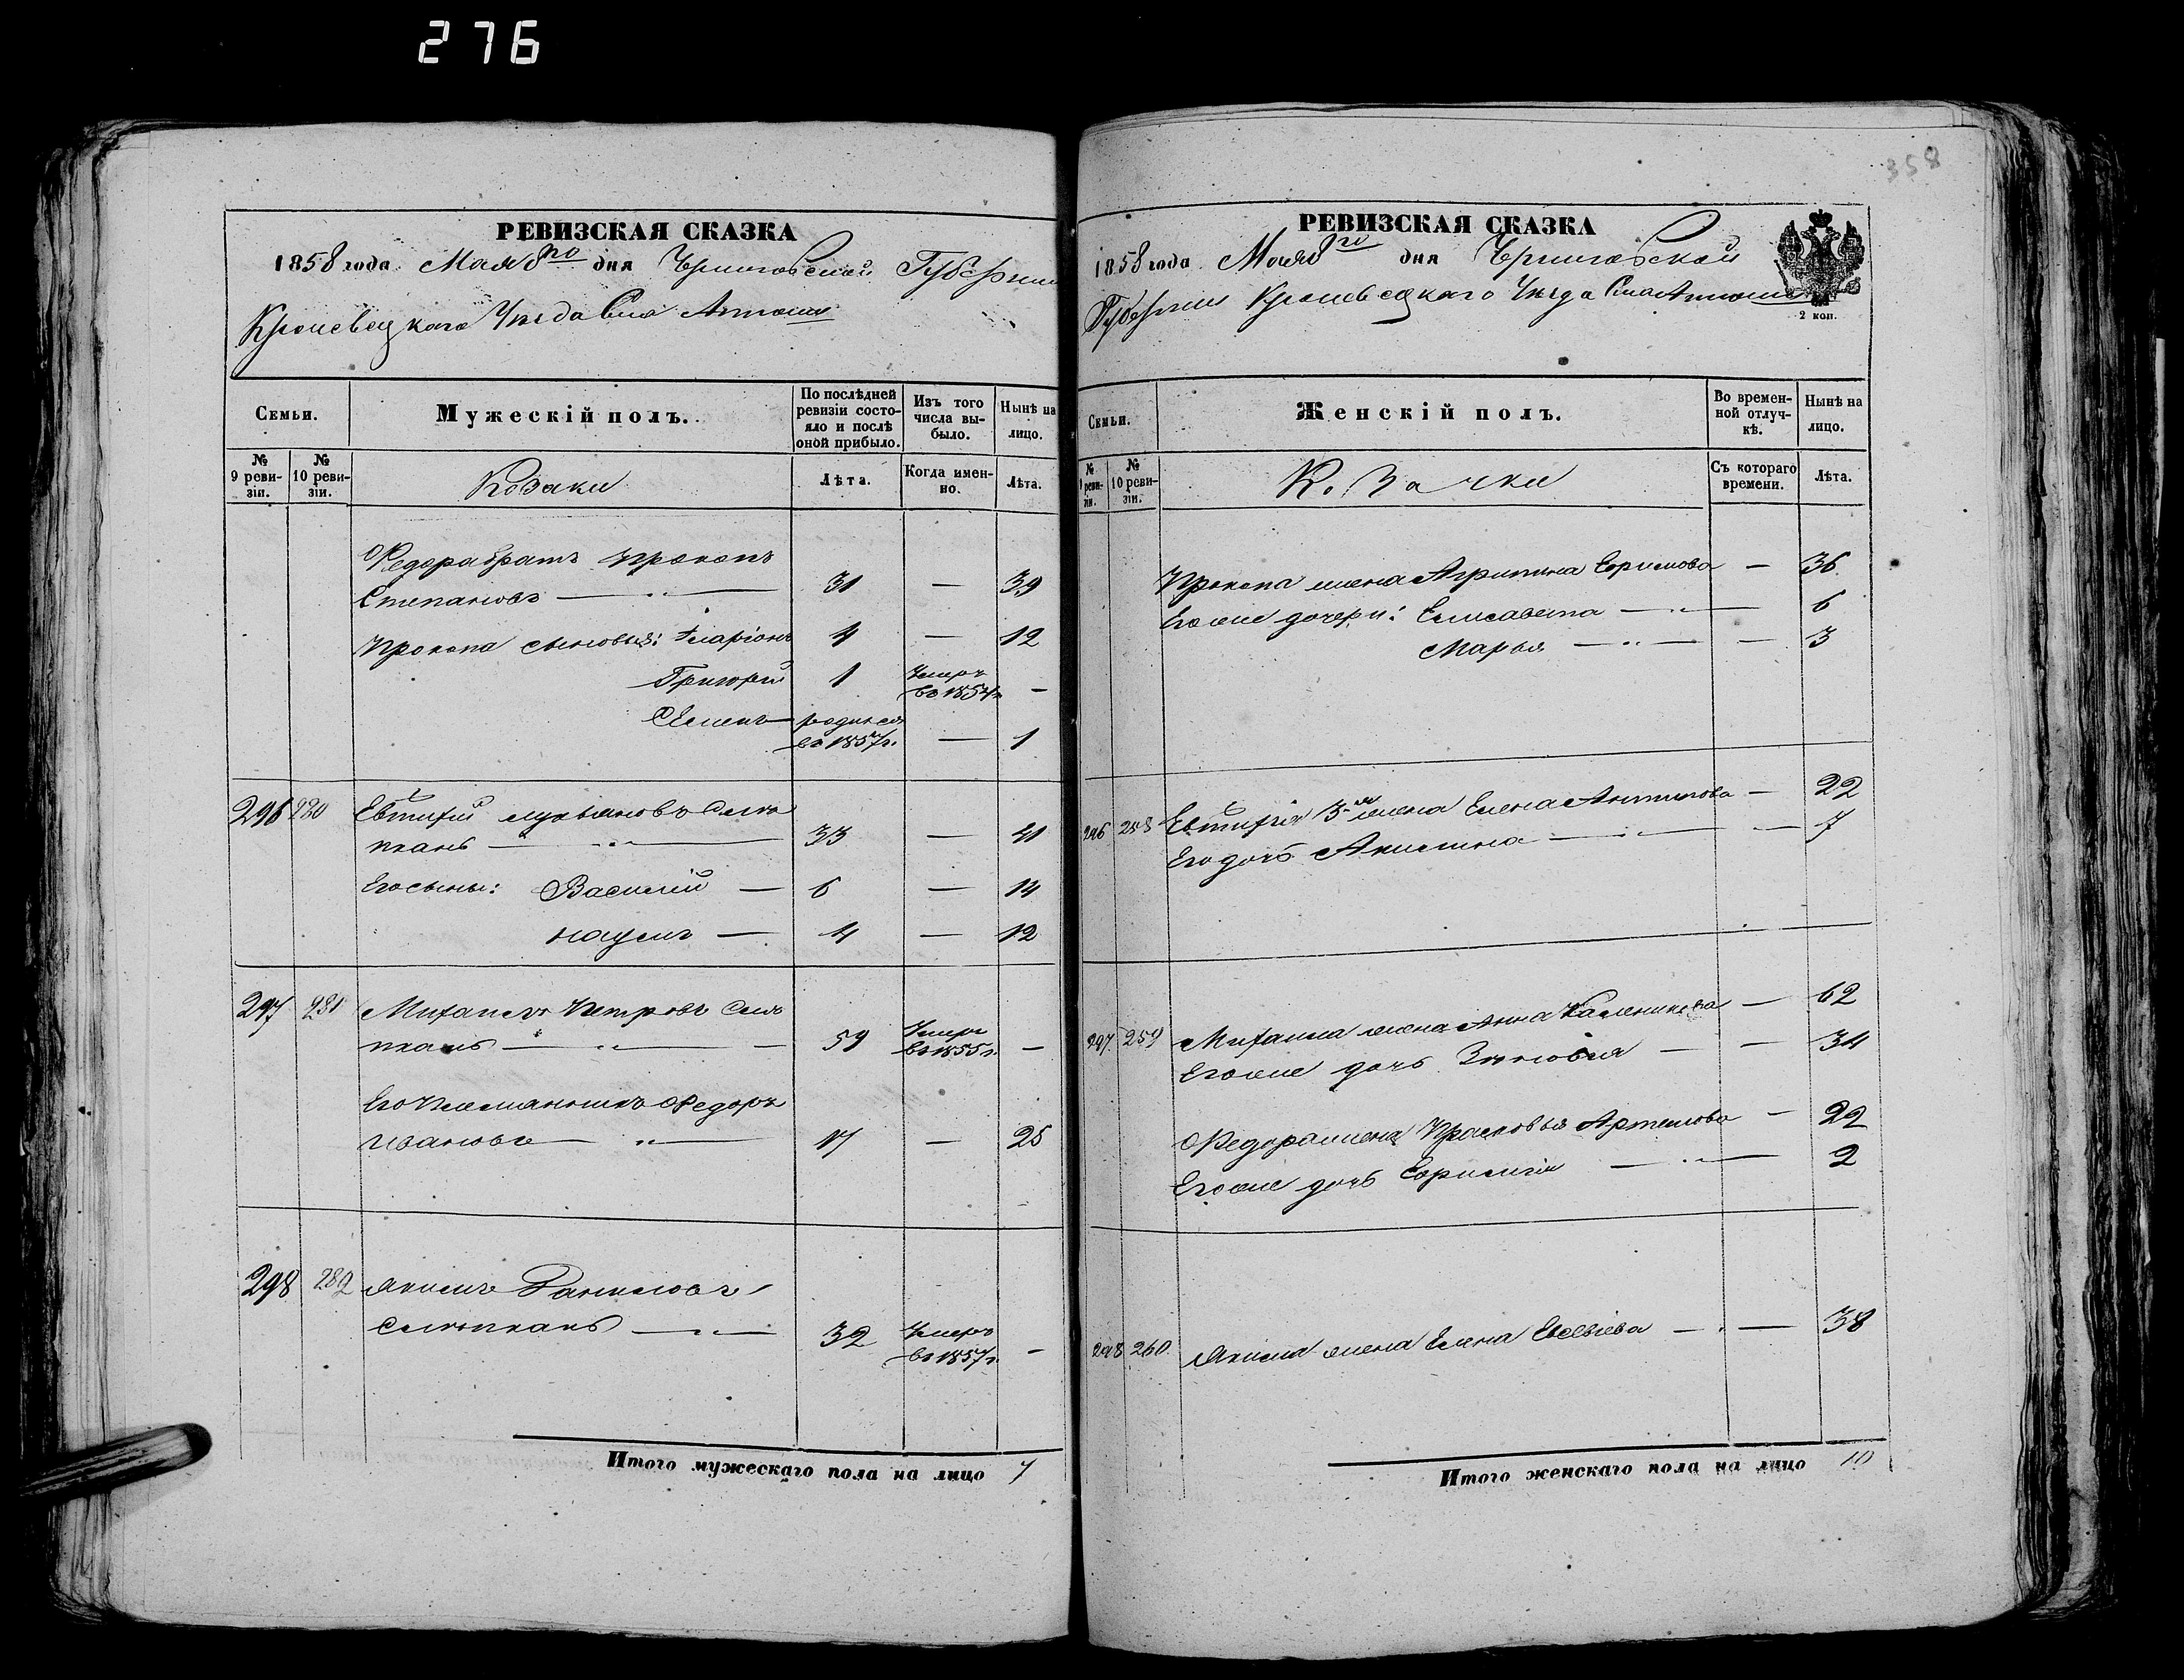 276
358
РЕВИЗСКАЯ СКАЗКА
1858 года Мая 8го дня Черниговской Губернии
Кролевецкаго Уезда Села
Семьи.
Мужескій полъ.
По послѣдней ревизіи состояло и послѣ оной прибыло.
Изъ того числа выбыло.
Нынѣ на лицо.
№ 9 ревизіи.
№ 10 ревизіи.
Козаки
Лѣта.
Когда именно.
Лѣта.
Федора братъ Прокопъ
Степановъ — 31 — 39
Прокопа сыновья: Иларіонъ 4 — 12
Григорій 1 Умеръ въ 1854 г. —
Семенъ родился въ 1857 г. — 1
296 280 Евтихій Лукьяновъ
33 — 41
Его сыны: Василій — 6 — 14
Наумъ — 4 — 12
297 281 Михаилъ Петровъ
59 Умеръ въ 1855 г. —
Его племянникъ Федоръ
Ивановъ — 17 — 25
298 282 Якимъ Даниловъ
32 Умеръ въ 1857 г. —
Итого мужескаго пола на лицо 7
РЕВИЗСКАЯ СКАЗКА
1858 года Мая 8го дня Черниговской
Губернии Кролевецкаго Уезда Села
2 коп.
Семьи.
Женскій полъ.
Во временной отлучкѣ.
Нынѣ на лицо.
№ 9 ревизіи.
№ 10 ревизіи.
Козачки
Съ котораго времени.
Лѣта.
Прокопа жена Агрипина Ефимова — 36
Его же дочери: Елисавета — 6
Марья — — 3
296 258 Евтихія 3-я жена Елена Антипова — 22
Его дочь Акилина — — 7
297 259 Михаила жена Анна Каленикова — 62
Его же дочь Зиновія — — 34
Федора жена Прасковья Артемова — 22
Его же дочь Ефимія — 2
298 260 Якима жена Елена Евсевіева — 38
Итого женскаго пола на лицо 10